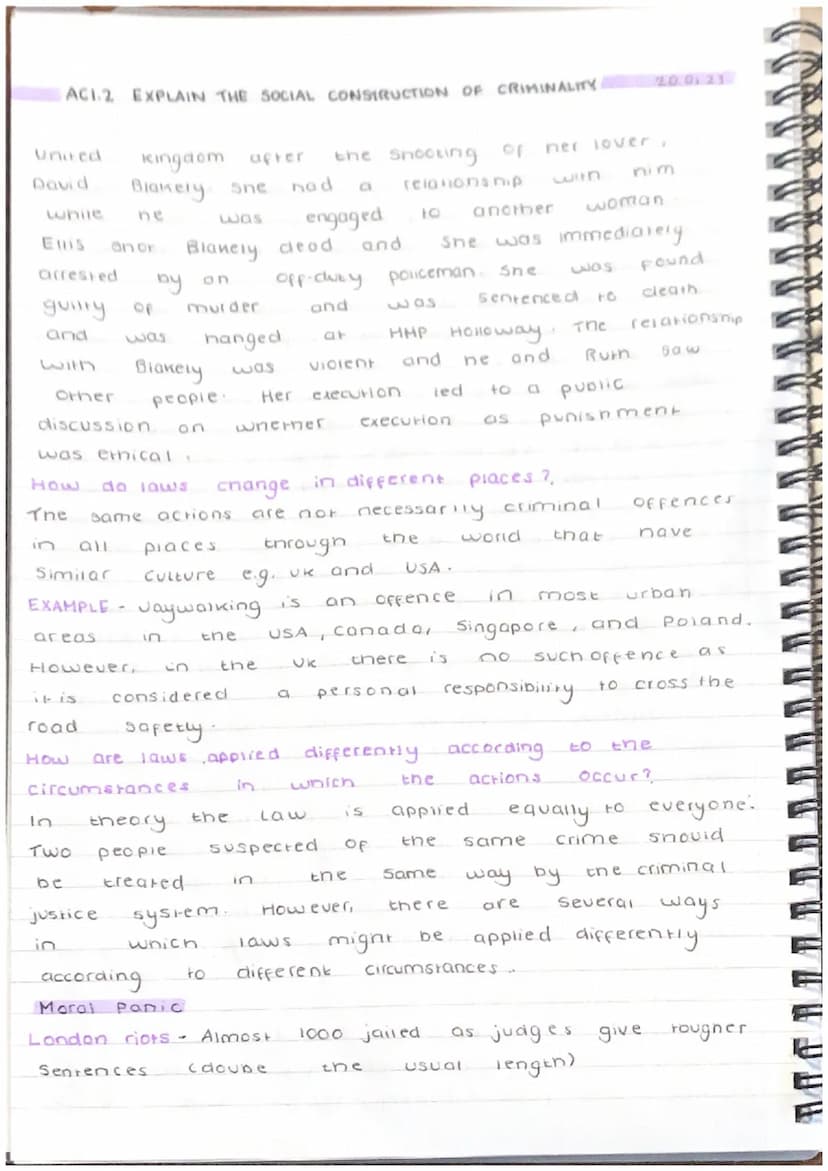 AC1.2 EXPLAIN THE SOCIAL CONSTRUCTION OF CRIMINALITY 20.01.21
United kingdom after the shooting of her lover,
David Blakely she had a relationship with him
while he was engaged to another woman.
Ellis shot Blakely dead and she was immediately
arrested by an off-duty policeman. She was found
guilty of murder and was sentenced to death
and was hanged at HMP Holloway. The relationship
with Blakely was violent and he and Ruth saw
other people. Her execution led to a public
discussion on whether execution as punishment
was ethical.
How do laws change in different places?
The same actions are not necessarily criminal offences
in all places through the world that have
similar culture e.g. UK and USA.
EXAMPLE - Jaywalking is an offence in most urban
areas in the USA, Canada, Singapore, and Poland.
However, in the UK there is no such offence as
it is considered a personal responsibility to cross the
road safetly.
How are laws applied differently according to the
circumstances in which the actions occur?
In theory the law is applied equally to everyone.
Two people suspected of the same crime should
be treated in the same way by the criminal
justice system. However, there are several ways
in which laws might be applied differently
according to different circumstances..
Moral panic
London riots - Almost 1000 jailed as judges give tougher
sentences (double the usual length)